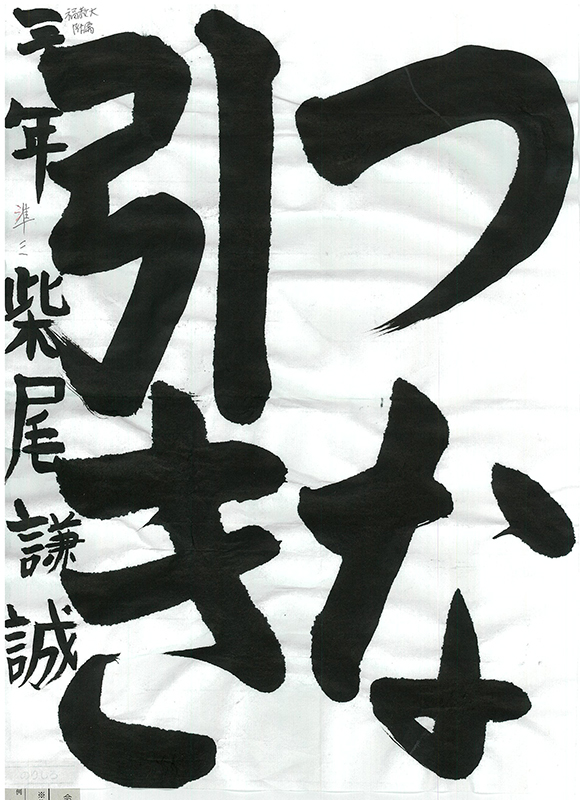 つな
引き
三年 柴尾謙誠
福教大
附小倉
準三
例
※